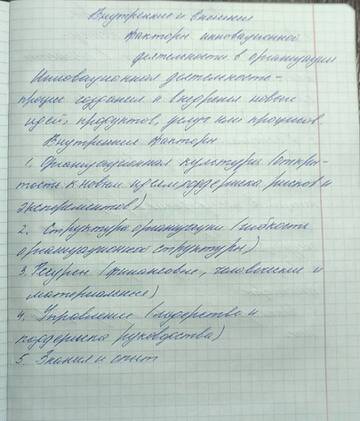 Внутренние и внешние
факторы инновационной
деятельности в организации
Инновационная деятельность -
процес создания и внедрения новых
идей, продуктов, услуг или процессов.
Внутренние факторы
1. Организационная культура (откры-
тость к новым идеям, поддержка рисков и
экспериментов)
2. Структура организации (гибкость
организационной структуры)
3. Ресурсы (финансовые, человеческие и
материальные)
4. Управление (лидерство и
поддержка руководства)
5. Знания и опыт